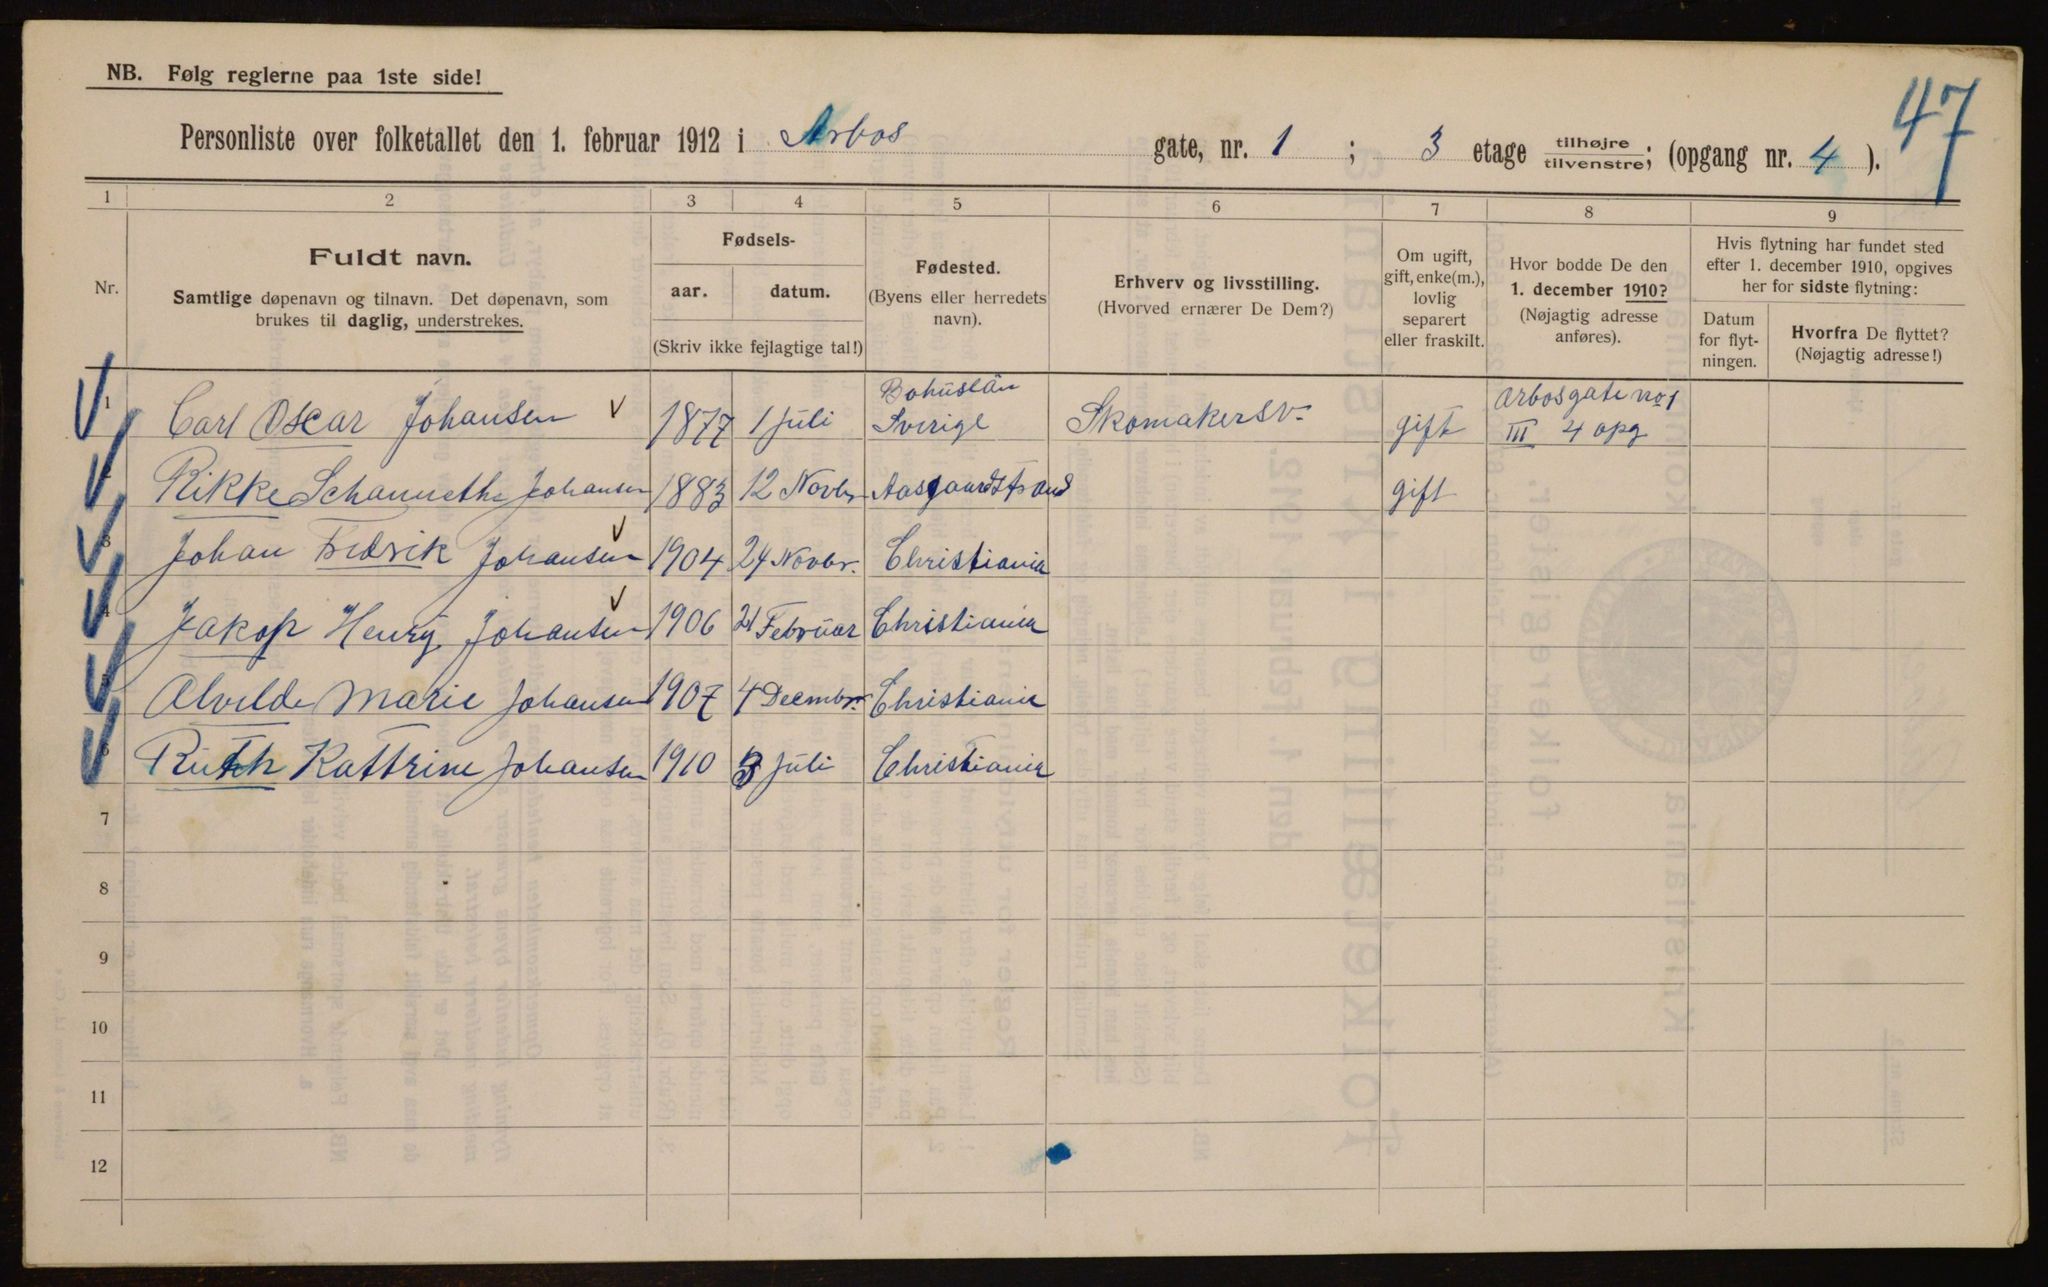 NB. Følg reglerne paa 1ste side!
47
Personliste over folketallet den 1. februar 1912 i Arbos gate, nr. 1 ; 3 etage tilhøjre tilvenstre; (opgang nr. 4 ).
1 2 3 4 5 6 7 8 9
Nr.
Fuldt navn.
Samtlige døpenavn og tilnavn. Det døpenavn, som
brukes til daglig, understrekes.
Fødsels-
aar. datum.
(Skriv ikke fejlagtige tal!)
Fødested.
(Byens eller herredets
navn).
Erhverv og livsstilling.
(Hvorved ernærer De Dem?)
Om ugift,
gift, enke(m.),
lovlig
separert
eller fraskilt.
Hvor bodde De den
1. december 1910?
(Nøjagtig adresse
anføres).
Hvis flytning har fundet sted
efter 1. december 1910, opgives
her for sidste flytning:
Datum
for flyt-
ningen.
Hvorfra De flyttet?
(Nøjagtig adresse!)
1 Carl Oscar Johansen 1877 1 Juli Bohuslän Sverige Skomakersv. gift Arbosgate no 1 III 4 opg
2 Rikke Johansen 1883 12 Novbr Aasgaardstrand gift
3 Johan Fredrik Johansen 1904 24 Novbr. Christiania
4 Jakop Henry Johansen 1906 21 Februar Christiania
5 Alvilde Marie Johansen 1907 4 Decmbr. Christiania
6 Ruth Kattrine Johansen 1910 3 Juli Christiania
7
8
9
10
11
12